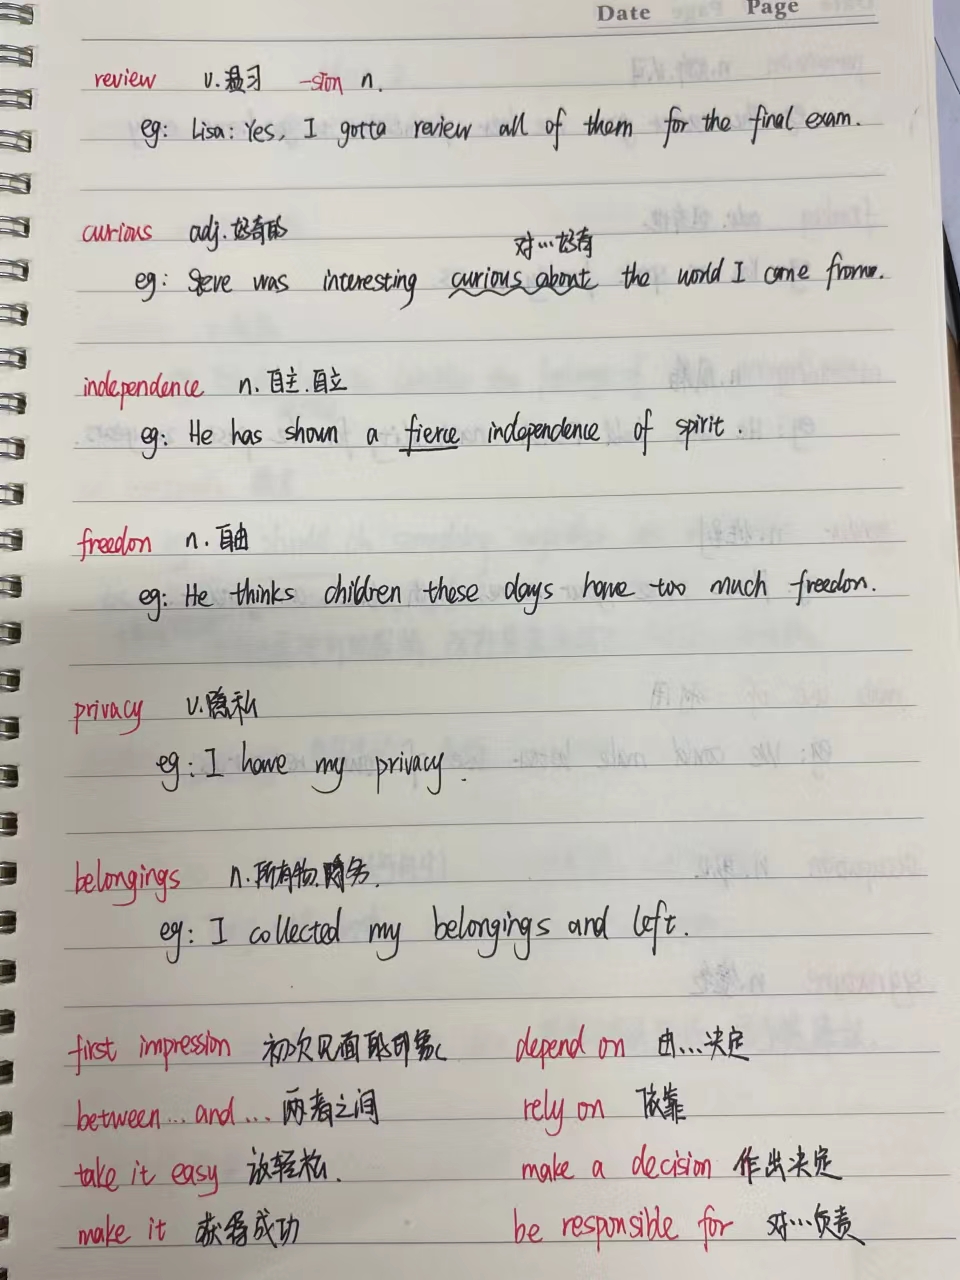 Date Page
review v.温习 -sion n.
eg: Lisa: Yes, I gotta review all of them for the final exam.
curious adj.好奇的
对…好奇
eg: Steve was interesting curious about the world I came from.
independence n.自主.自立
eg: He has shown a fierce independence of spirit.
freedon n.自由
eg: He thinks children these days have too much freedon.
privacy v.隐私
eg: I have my privacy.
belongings n.所有物.财务.
eg: I collected my belongings and left.
first impression 初次见面的印象 depend on 由…决定
between…and… 两者之间 rely on 依靠
take it easy 放轻松. make a decision 作出决定
make it 获得成功 be responsible for 对…负责